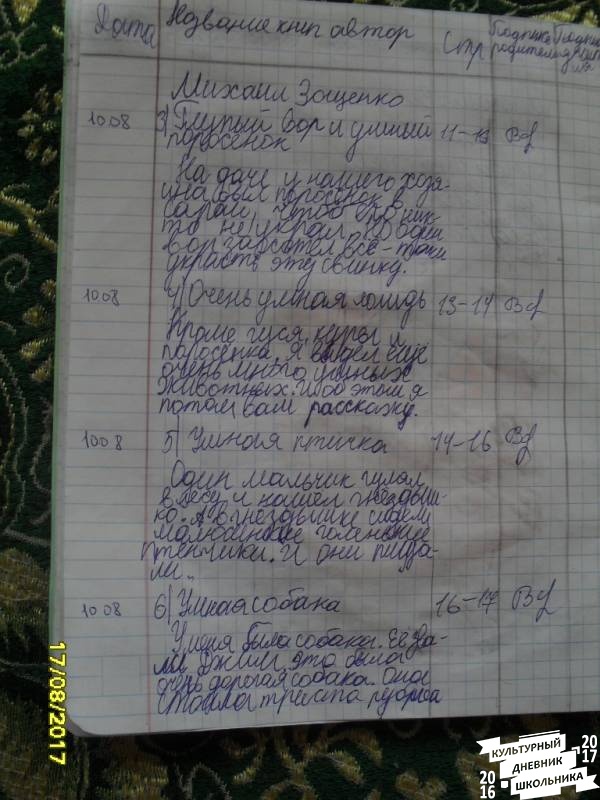 Дата Название книг автор Стр Подпись родителя Подпись
Михаил Зощенко
10.08 3) Глупый вор и умный 11-13
поросёнок
На даче у нашего хозя-
ина был поросёнок в
сарай, чтоб его ник-
то не украл. Но один
вор захотел всё-таки
украсть эту свинку.
10.08 4) Очень умная лошадь 13-14
Кроме гуся, куры и
поросёнка, я видел ещё
очень много умных
животных. И об этом я
потом вам расскажу.
10.08 5) Умная птичка 14-16
Один мальчик гулял
в лесу и нашёл гнёздыш-
ко. А в гнёздышке сидели
малюсенькие голенькие
птенчики. И они пища-
ли..
10.08 6) Умная собака 16-17
У меня была собака. Её зва-
ли Джим, это была
очень дорогая собака. Она
стоила триста
17/08/2017
КУЛЬТУРНЫЙ
ДНЕВНИК
ШКОЛЬНИКА
2016
2017